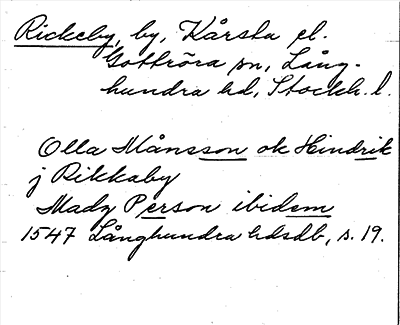 Rickeby, by, Kårsta el.
Gottröra sn, Lång-
hundra hd, Stockh. l.
Olla Månsson ok Hindrik
j Rikkaby
Madz Person ibidem
1547 Långhundra hdsdb, s. 19.